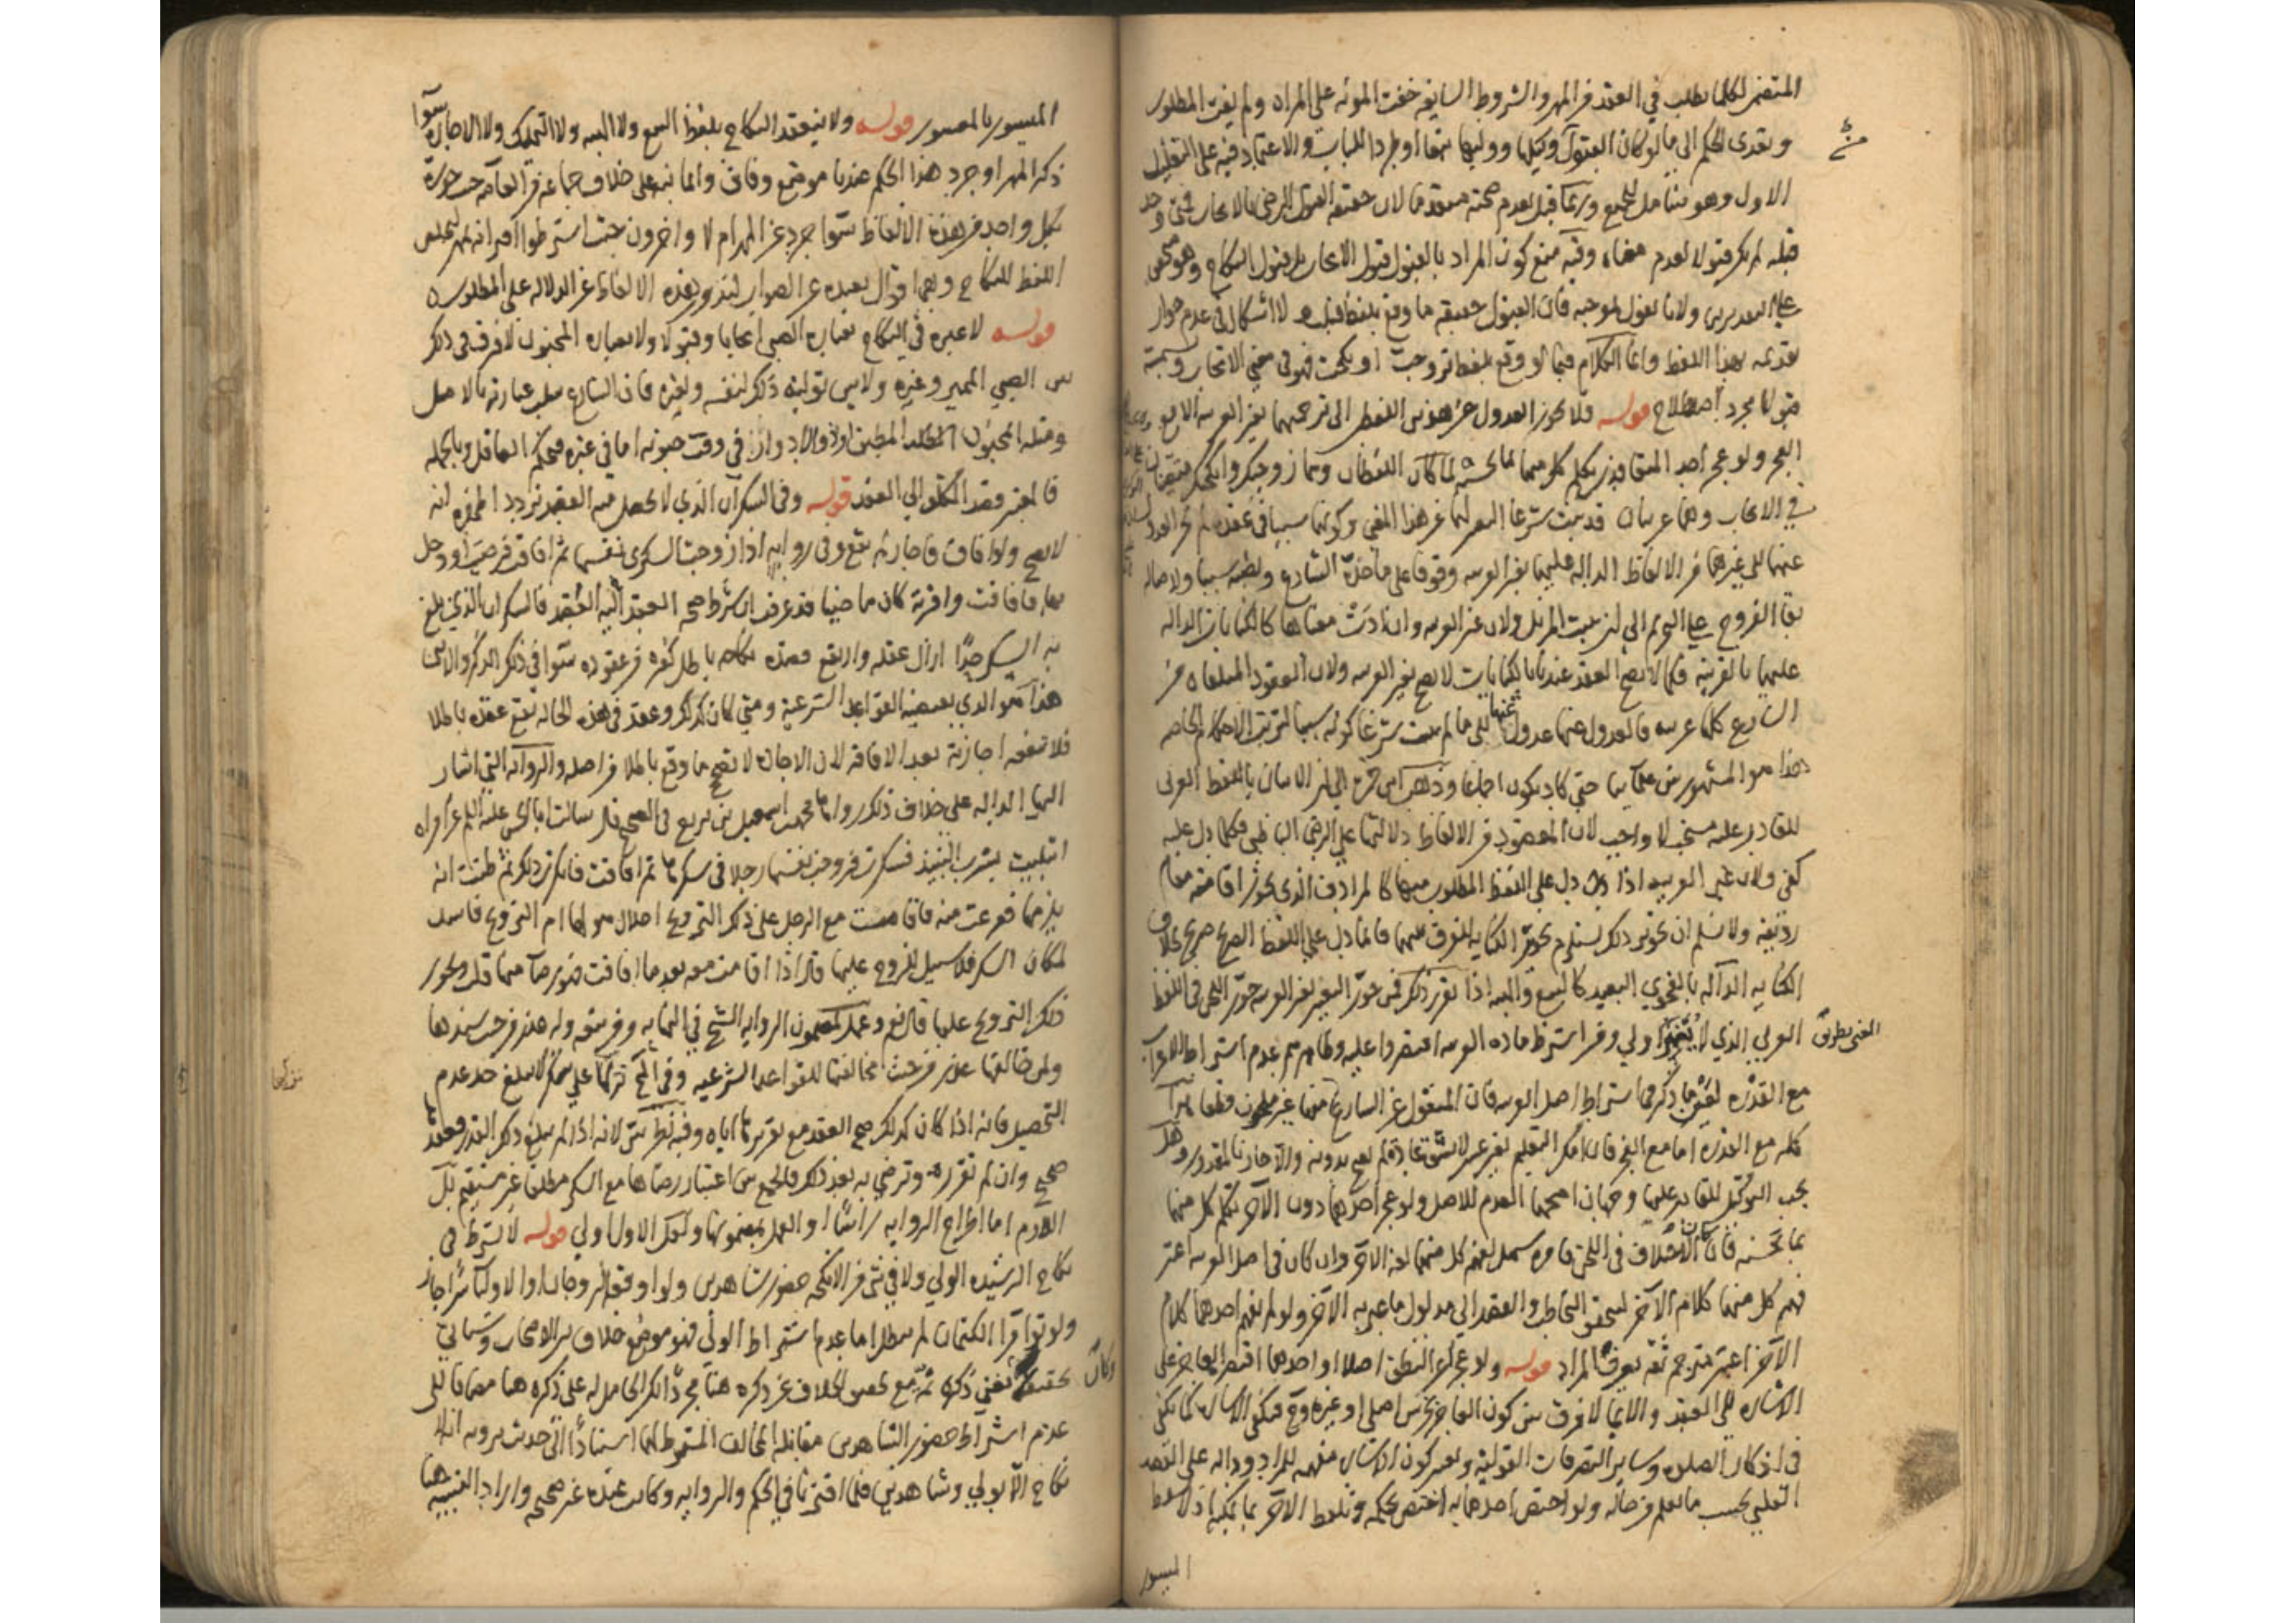 المتضمن لكلما يطلب في العقد من المهر والشروط السايغه خفت المونه على المراه ولم يفت المطلوب
وتعدى الحكم الى ما لو كان القبول وكيلها ووليها متقا او جردا للباب والاعتماد فيه على التعليل
الاول وهو شامل للجميع وربما قيل بعدم صحته متقدما لان حقيقه القبول الرضى بالايجاب فمتى وجد
قبله لم يكن قبولا لعدم معناه وفيه منع كون المراد بالقبول قبول الايجاب بل قبول النكاح وهو متحقق
على التقديرين ولانا نقول بموجبه فان القبول حقيقه ما وقع بلفظ قبلت ولا اشكال في عدم جواز
تقديمه بهذا اللفظ وانما الكلام فيما لو وقع بلفظ تزوجت او نكحت فهو في معنى الايجاب وتسميته
قبولا مجرد اصطلاح قوله فلا يجوز العدول عن هذين اللفظين الى ترجمتهما بغير العربيه الا مع
العجز ولو عجز احد المتعاقدين تكلم كل منهما بما يحسنه لما كان اللفظان وهما زوجتك وانكحتك متفقان
في الايجاب وهما عربيان قد ثبت شرعا استعمالهما في هذا المعنى وكونهما سببا في عقده لم يجز العدول
عنهما الى غيرهما من الالفاظ الداله عليهما بغير العربيه وقوفا على ما حده الشارع ونصبه سببا ولاصاله
بقا الفروج على التحريم الى ان يثبت المزيل ولان غير العربيه وان ادت معناها كالكنايات الداله
عليهما بالقرينه فكما لا يصح العقد عندنا بالكنايات لا يصح بغير العربيه ولان العقود المتلقاه من
الشارع كلها عربيه فالعدول عنها عدول الى ما لم يثبت شرعا كونه سببا لترتب الاحكام الخاصه
هذا هو المشهور بين علمائنا حتى كاد يكون اجماعا وذهب ابن حمزه الى ان الاتيان باللفظ العربى
للقادر عليه مستحب لا واجب لان المقصود من الالفاظ دلالتها على الرضى الباطني فكلما دل عليه
كفى ولان غير العربيه اذا دل على اللفظ المطلوب منها كالمرادف الذي يجوز اقامته مقام
رديفه ولا نسلم ان تجويز ذلك يستلزم تجويز الكنايه للفرق بينهما فان ما دل على اللفظ الصريح صريح بخلاف
الكنايه الداله بالفحوى البعيد كالبيع والهبه اذا تقرر ذلك فمن جوز التعبير بغير العربيه جوز اللحن في اللفظ
العربي الذي لا يتغير المعنى بطريق اولى ومن اشترط ماده العربيه اقتصروا عليه وظاهرهم عدم اشتراط الاعراب
مع القدره لعين ما ذكر في اشتراط اصل العربيه فان المنقول عن الشارع منهما غير ملحون قطعا هذا
كله مع القدره اما مع العجز فان امكن التعليم بغير عسر لا يشق عاده لم يصح بدونه والا جاز بالمقدور وهل
يجب التوكيل للقادر عليها وجهان اصحهما العدم للاصل ولو عجز احدهما دون الاخر تكلم كل منهما
بما يحسنه فان كان الاختلاف في اللحن فامره سهل لفهم كل منهما لغه الاخر وان كان في اصل العربيه اعتبر
فهم كل منهما كلام الاخر ليتحقق التخاطب والقصد الى مدلول ما عبر به الاخر ولو لم يفهم احدهما كلام
الاخر اعتبر مترجم ثقه يعرف المراد قوله ولو عجزا عن النطق اصلا او احدهما اقتصر العاجز على
الاشاره الى العقد والايما لا فرق بين كون العاجز اخرس اصليا وغيره وح فيكفي الاشاره كما يكفي
في اذكار الصلوه وساير التصرفات القوليه ويعتبر كون الاشاره مفهمه للمراد وداله على القصد
القلبي بحسب ما يعلم من حاله ولو اختص احدهما به اختص بحكمه وتلفظ الاخر بما يمكنه اذ لا يسقط
الميسور
الميسور بالمعسور قوله ولا ينعقد النكاح بلفظ البيع ولا الهبه ولا التمليك ولا الاجاره سوا
ذكر المهر او جرد هذا الحكم عندنا موضع وفاق وانما نبه على خلاف جماعه من العامه حيث جوزه
بكل واحد من هذه الالفاظ سوا جرد عن المهر ام لا واخرون حيث اشترطوا اقترانه بمهر ليخلص
اللفظ للنكاح وهما قولان بعيدان عن الصواب لبعد هذه الالفاظ عن الدلاله على المطلوب
قوله لا عبره في النكاح بعباره الصبي ايجابا وقبولا ولا بعباره المجنون لا فرق في ذلك
بين الصبي المميز وغيره ولا بين توليته ذلك لنفسه ولغيره فان الشارع سلب عبارته بالاصل
ومثله المجنون المطبق اوذو الادوار في وقت جنونه اما في غيره فبحكم العاقل وبالجمله
فالمعتبر قصد المكلف الى العقد قوله وفي السكران الذي لا يحصل منه العقد تردد اظهره انه
لا يصح ولو افاق فاجازه يقع وفي روايه اذا زوجت السكرى نفسها ثم افاقت فرضيت او دخل
بها فافاقت واقرته كان ماضيا قد عرفت ان شرط صحه العقد اليه القصد فالسكران الذي بلغ
به السكر حدا ازال عقله وارتفع قصده نكاحه باطل كغيره من عقوده سوا في ذلك الذكر والانثى
هذا هو الذي يقتضيه القواعد الشرعيه ومتى كان كذلك وعقد في هذه الحاله يقع عقده باطلا
فلا تنفعه اجازته بعد الافاقه لان الاجازه لا تصحح ما وقع باطلا من اصله والروايه التي اشار
اليها الداله على خلاف ذلك رواها محمد بن اسمعيل بن بزيع في الصحيح قال سالت ابا الحسن عليه السلم عن امراه
ابتليت بشرب النبيذ فسكرت فزوجت نفسها رجلا في سكرها ثم افاقت فانكرت ذلك ثم ظنت انه
يلزمها ففزعت منه فاقامت مع الرجل على ذلك التزويج احلال هو لها ام التزويج فاسد
لمكان السكر فلا سبيل للزوج عليها قال اذا اقامت معه بعد ما افاقت فهو رضا منها قلت ويجوز
ذلك التزويج عليها قال نعم وعمل بمضمون الروايه الشيخ في النهايه ومن تبعه وله عذر من حيث سندها
ولمن خالفها عذر من حيث مخالفتها للقواعد الشرعيه وفي المختلف نزلها على سكر لا يبلغ حد عدم
التحصيل فانه اذا كان كذلك صح العقد مع تقريرها اياه وفيه نظر بين لانه اذا لم يبلغ ذلك القدر فعقدها
صحيح وان لم تقرره وترضى به بعد ذلك فالجمع بين اعتبار رضاها مع السكر مطلقا غير مستقيم بل
اللازم اما اطراح الروايه راسا او العمل بمضمونها ولعل الاول اولى قوله لا يشترط في
نكاح الرشيده الولي ولا في شي من الانكحه حضور شاهدين ولو اوقعه الزوجان او الاوليا سرا جاز
ولو تؤامرا الكتمان لم يبطل اما عدم اشتراط الولي فهو موضع خلاف بين الاصحاب وسياتي
تحقيقه وكان يغني ذكره ثم مع تحقيق الخلاف عن ذكره هنا مجردا لكن الحامل له على ذكره هنا مضافا الى
عدم اشتراط حضور الشاهدين مقابله المخالف المشترط لهما استنادا الى حديث يرويه انه لا
نكاح الا بولي وشاهدين فلما اقترنا في الحكم والروايه وكانت عنده غير صحيحه واراد التنبيه هنا